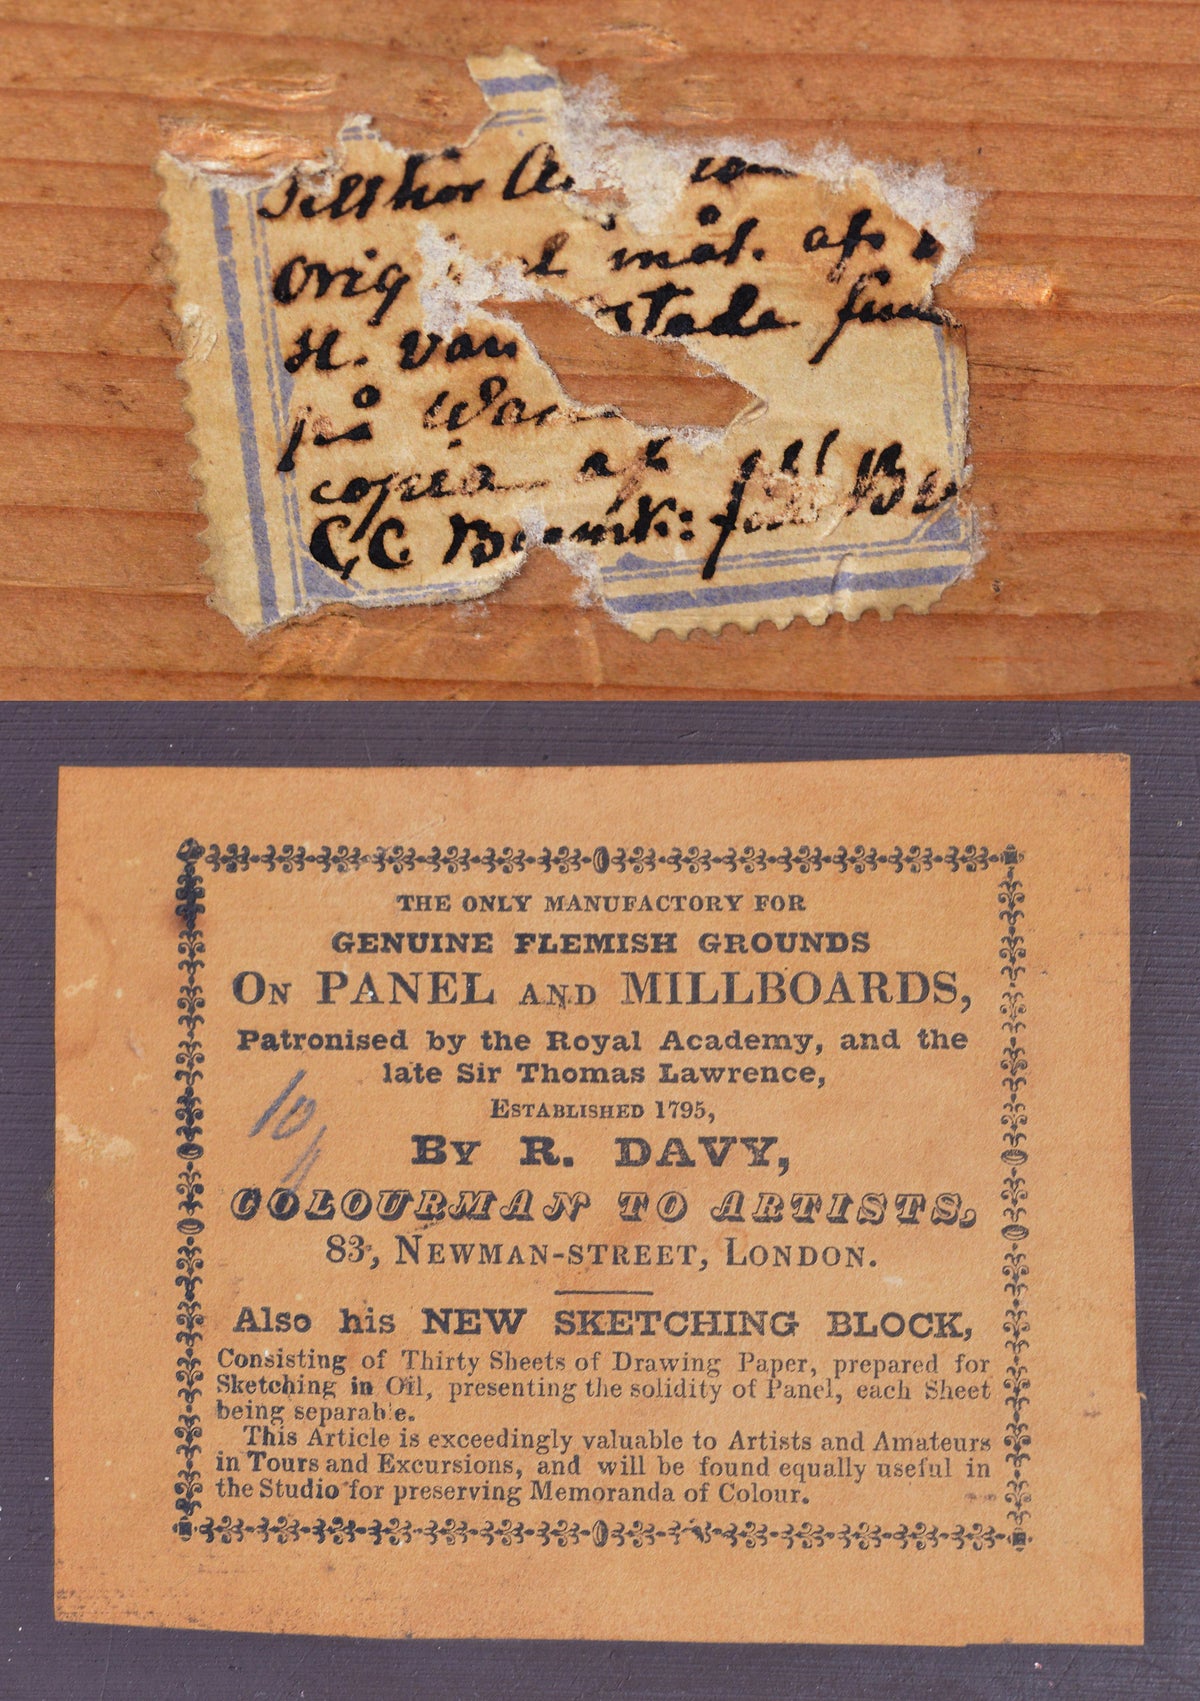 Tillhör
Orig mål. af
H. van stade
på
copia af
C. C.
THE ONLY MANUFACTORY FOR
GENUINE FLEMISH GROUNDS
ON PANEL AND MILLBOARDS,
Patronised by the Royal Academy, and the
late Sir Thomas Lawrence,
ESTABLISHED 1795,
BY R. DAVY,
COLOURMAN TO ARTISTS,
83, NEWMAN-STREET, LONDON.
Also his NEW SKETCHING BLOCK,
Consisting of Thirty Sheets of Drawing Paper, prepared for
Sketching in Oil, presenting the solidity of Panel, each Sheet
being separable.
This Article is exceedingly valuable to Artists and Amateurs
in Tours and Excursions, and will be found equally useful in
the Studio for preserving Memoranda of Colour.